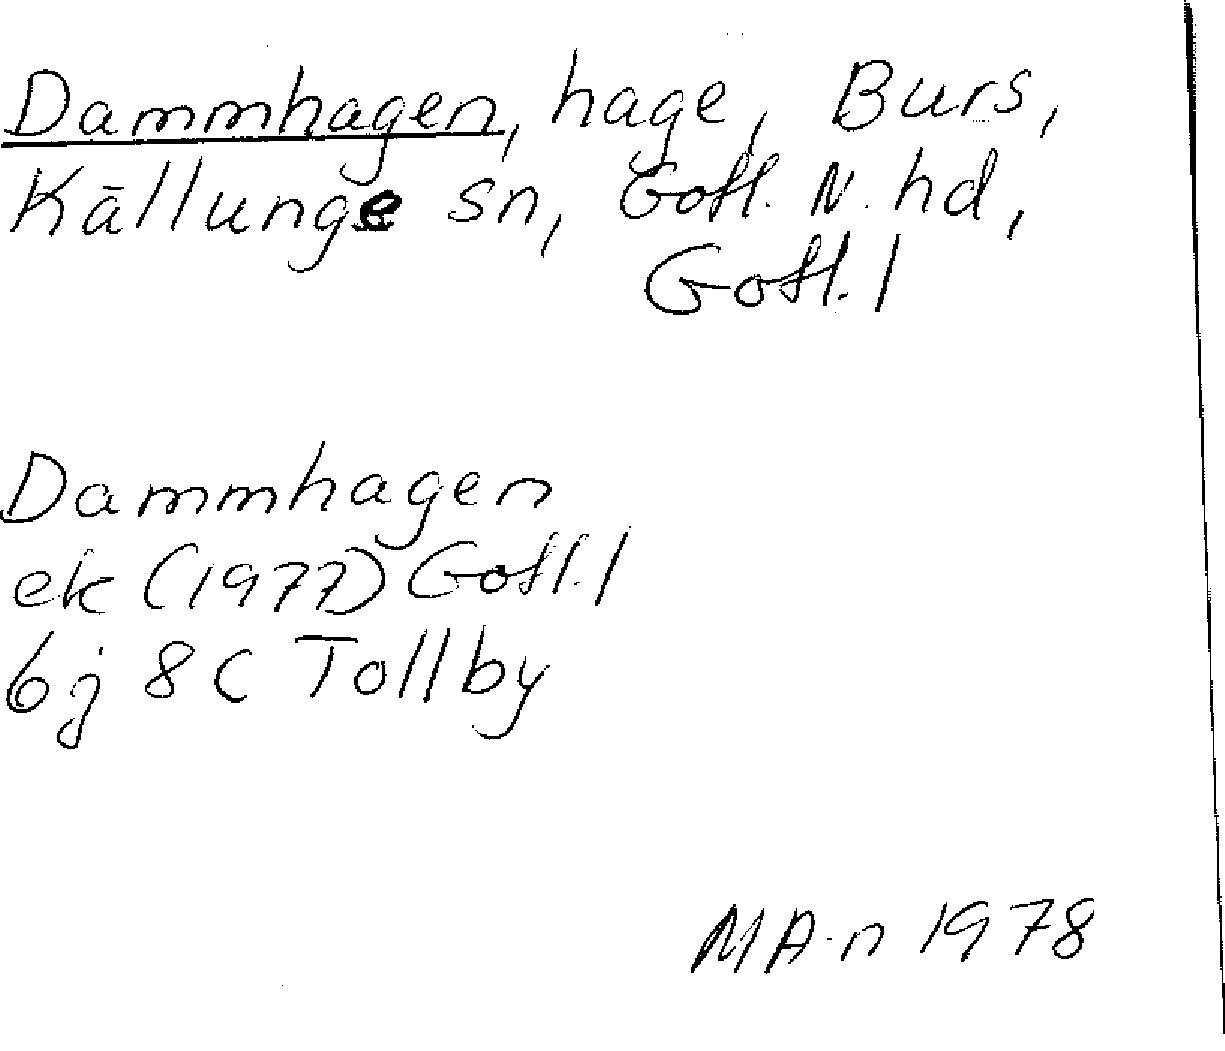 Dammhagen, hage, Burs,
Källunge sn, Gotl. N. hd,
Gotl. l
Dammhagen
ek (1977) Gotl. l
6j 8c Tollby
MA-n 1978